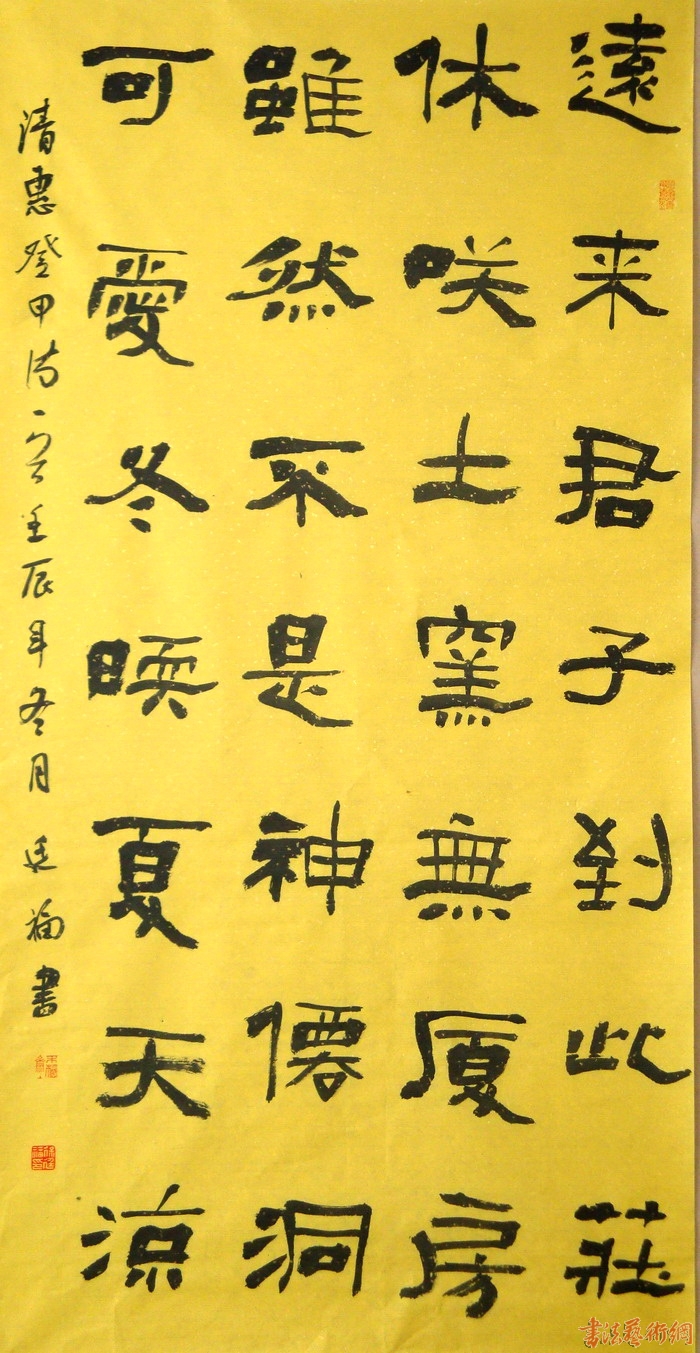 遠来君子到此莊
休咲土窑無厦房
雖然不是神僊洞
可愛冬暖夏天涼
清惠登甲诗一首壬辰年冬月廷福書
書法藝術網